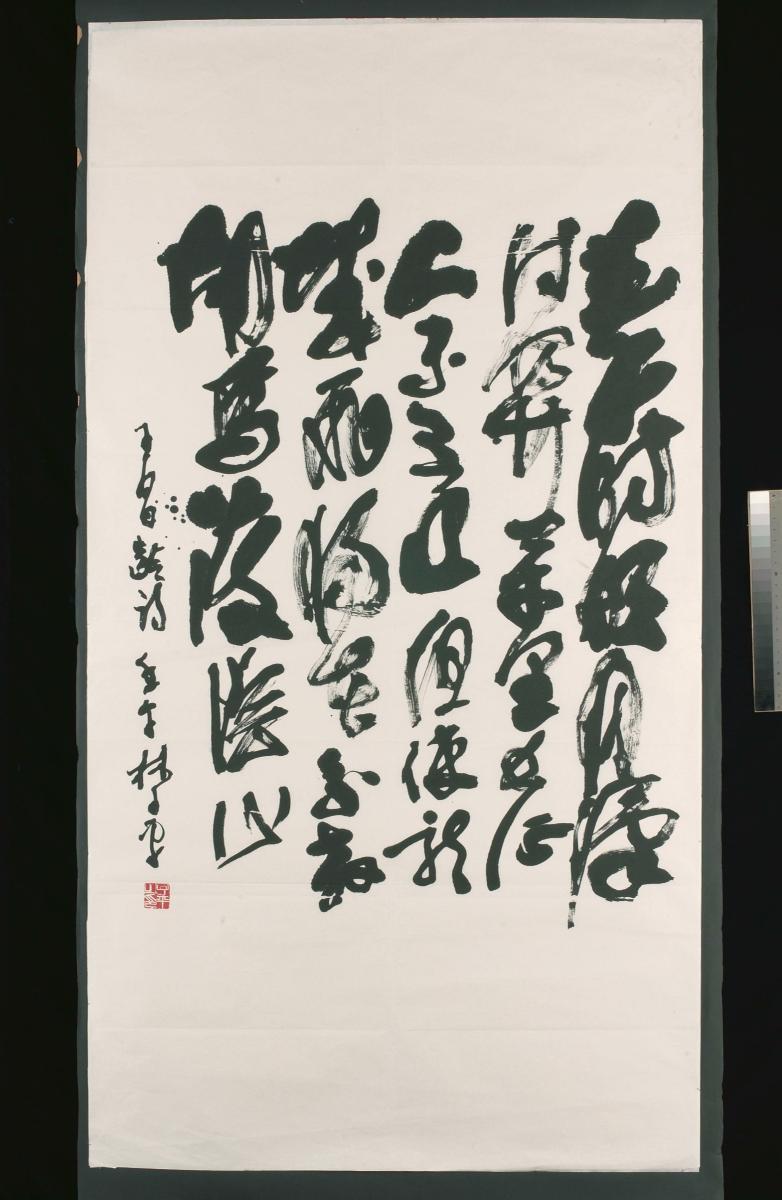 秦時明月漢
時關萬里長征
人未還但使龍
城飛將在不教
胡馬度陰山
王昌齡詩 林